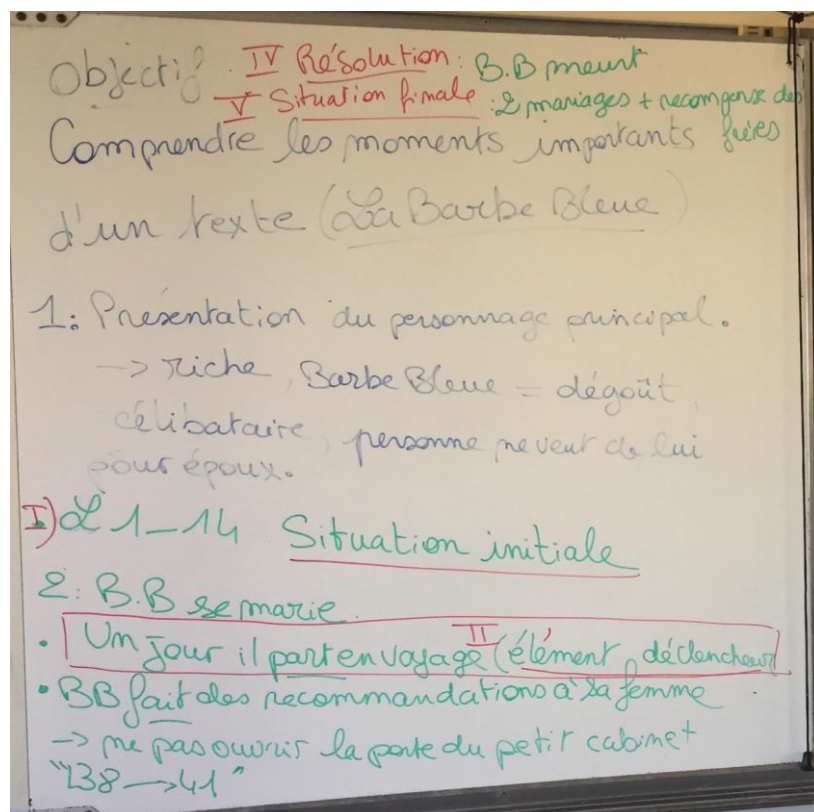 Objectif. IV Résolution : B.B meurt
V Situation finale : 2 mariages + recompense des
fées
Comprendre les moments importants
d'un texte (La Barbe Bleue)
1: Présentation du personnage principal.
-> riche, Barbe Bleue = dégoût,
célibataire, personne ne veut de lui
pour époux.
I) L 1-14 Situation initiale
2: B.B se marie.
• Un jour il part en voyage II (élément déclencheur)
• BB fait des recommandations à sa femme
-> ne pas ouvrir la porte du petit cabinet
"L38 -> 41"